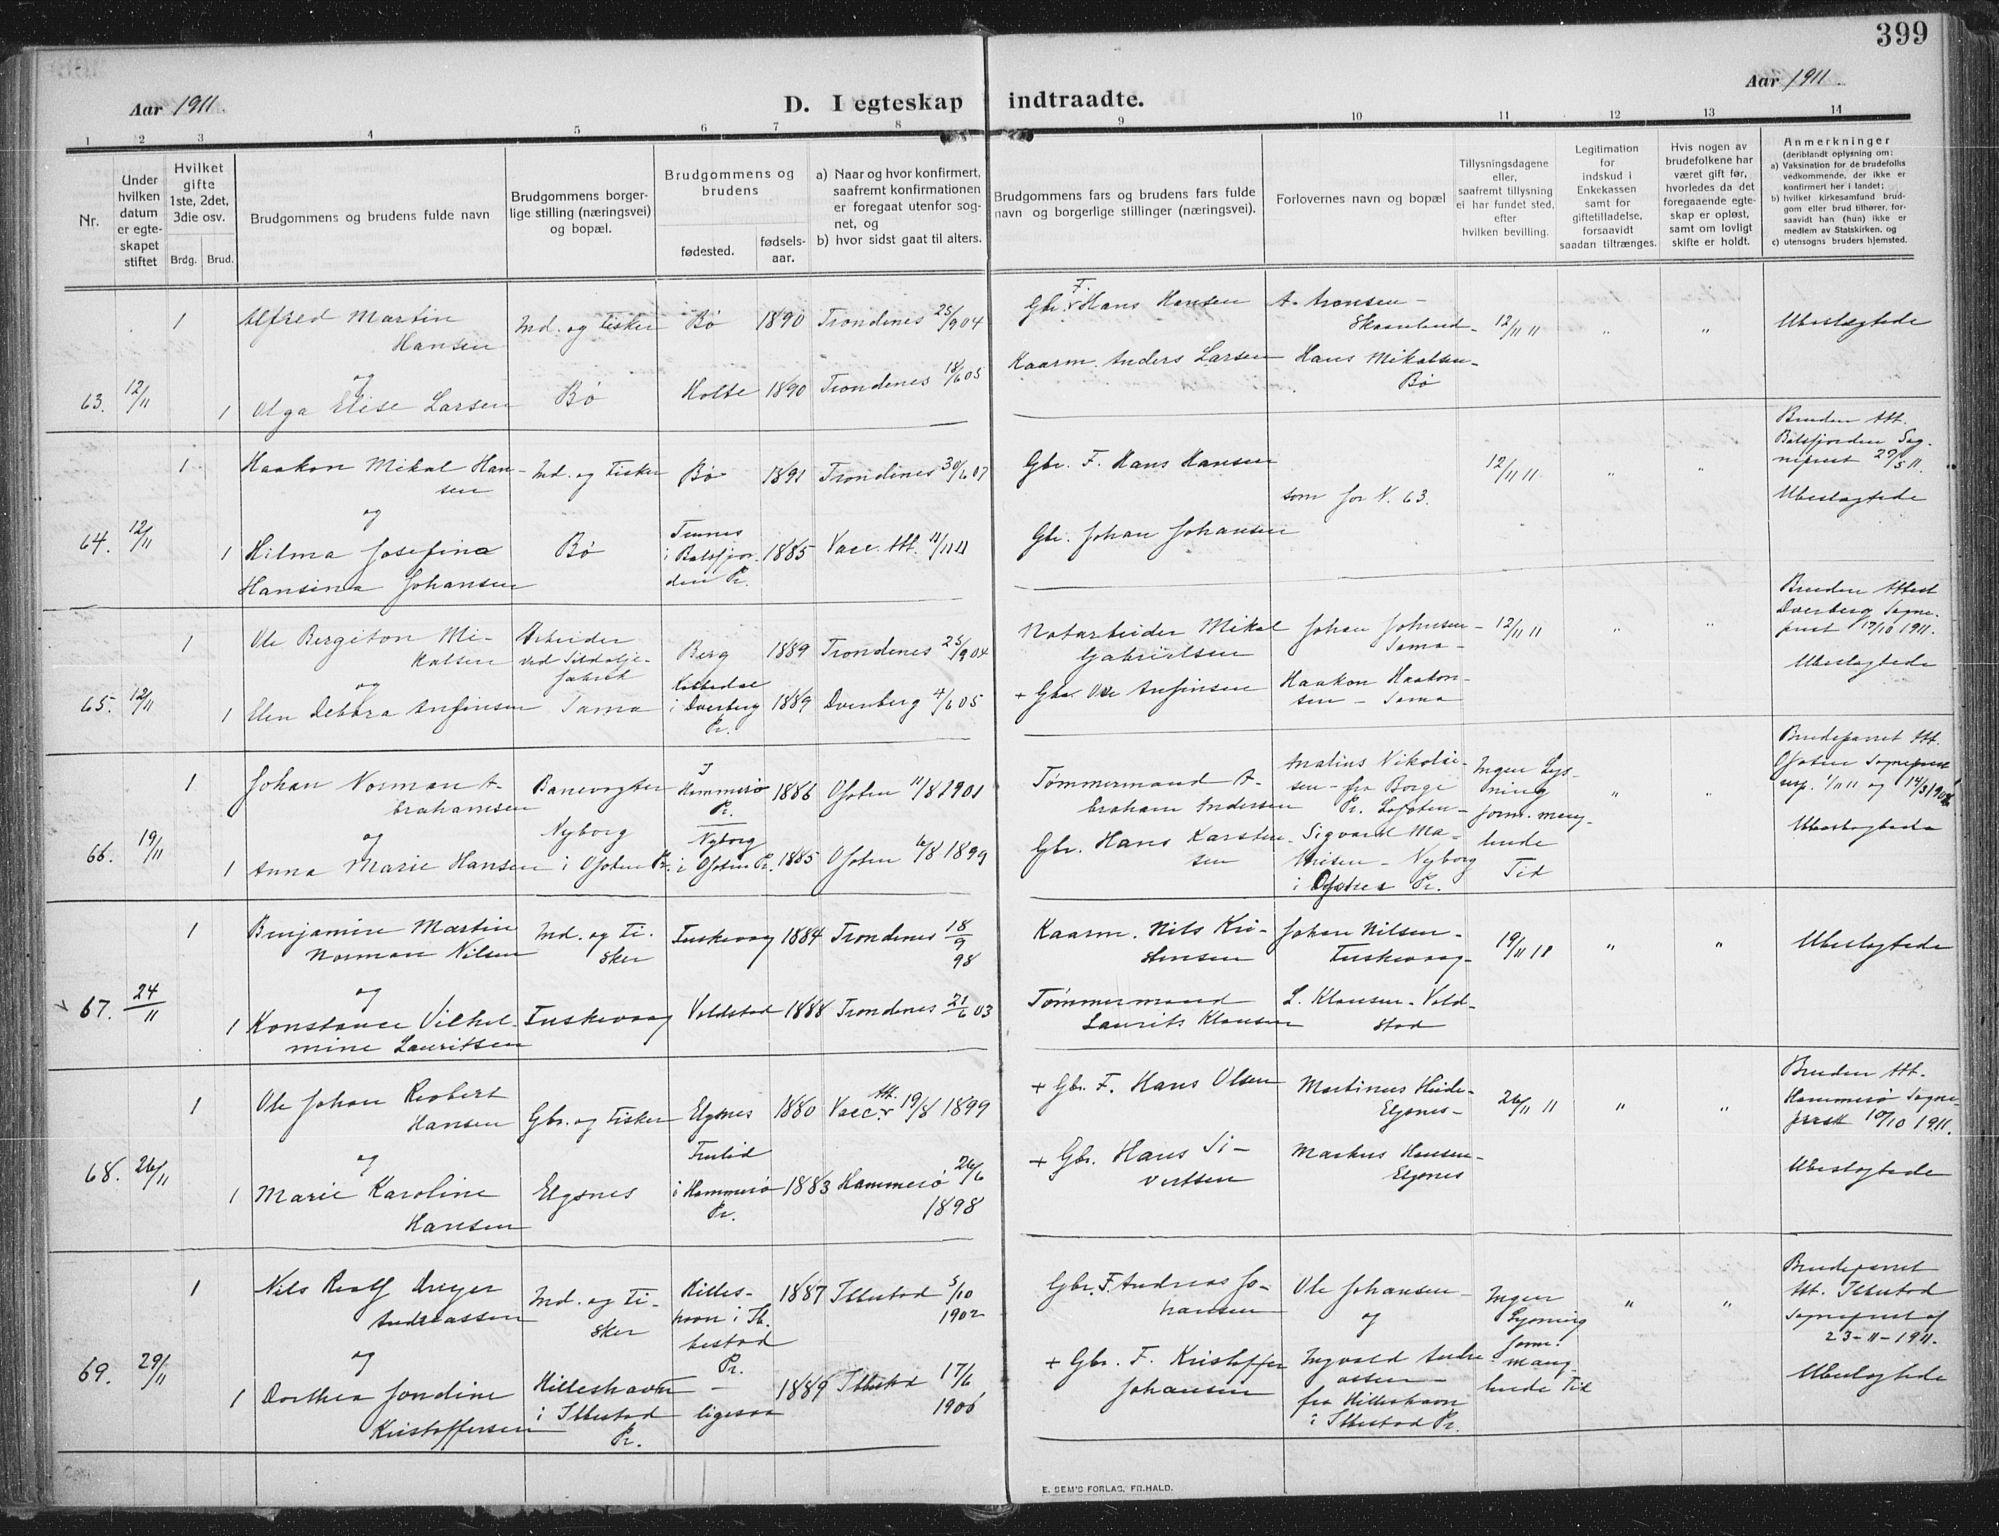 399
Aar 1911.
D. I egteskap indtraadte.
Aar 1911
1 2 3 4 5 6 7 8 9 10 11 12 13 14
Nr.
Under hvilken datum er egteskapet stiftet
Hvilket gifte 1ste, 2det, 3die osv.
Brdg. Brud.
Brudgommens og brudens fulde navn
Brudgommens borgerlige stilling (næringsvei) og bopæl.
Brudgommens og brudens
fødested.
fødselsaar.
a) Naar og hvor konfirmert, saafremt konfirmationen er foregaat utenfor sognet, og
b) hvor sidst gaat til alters.
Brudgommens fars og brudens fars fulde navn og borgerlige stillinger (næringsvei).
Forlovernes navn og bopæl
Tillysningsdagene eller, saafremt tillysning ei har fundet sted, efter hvilken bevilling.
Legitimation for indskud i Enkekassen samt for giftetilladelse, forsaavidt saadan tiltrænges.
Hvis nogen av brudefolkene har været gift før, hvorledes da det foregaaende egteskap er opløst, samt om lovligt skifte er holdt.
Anmerkninger
(deriblandt oplysning om:
a) Vaksination for de brudefolks vedkommende, der ikke er konfirmert her i landet;
b) hvilket kirkesamfund brudgom eller brud tilhører, forsaavidt han (hun) ikke er medlem av Statskirken, og
c) utensogns bruders hjemsted.
63. 12/11
1 Alfred Martin Hansen
Ind. og fisker
Bø 1890 Trondenes 25/9 04
Gbr. F. Hans Hansen
A. Aronsen - Skaanland
12/11 11 " "
Ubeslegtede
og
1 Olga Elise Larsen
Bø
Holte 1890 Trondenes 18/6 05
Kaarm. Anders Larsen
Hans Mikalsen - Bø
64. 12/11
1 Haakon Mikal Hansen
Ind. og fisker
Bø 1891 Trondenes 30/6 07
Gbr. F. Hans Hansen
som for N. 63.
12/11 11. " "
Bruden Att. Balsfjorden Sogneprest 29/5 11.
Ubeslegtede
og
1 Hilma Josefina Hansina Johansen
Bø
i Balsfjorden Pr. 1885 Vacc. Att. 11/11 11
Gbr. Johan Johansen
65. 12/11
1 Ole Bergiton Mikalsen
Arbeider ved Sildoljefabrik
Berg 1889 Trondenes 25/9 04
Notarbeider Mikal Gabrielsen
Johan Johnsen - Sama -
12/11 11 " "
Bruden Attest Dverberg Sogneprest 17/10 1911.
Ubeslegtede
og
1 Elen Debora Anfinsen
Sama
i Dverberg Pr. 1889 Dverberg 4/6 05
+ Gbr. Ole Anfinsen
Haakon Haakonsen - Sama
66. 19/11
1 Johan Norman Abrahamsen
Banevogter
I Hammerø Pr. 1886 Ofoten 11/8 1901
Tømmermand Abraham Andersen
Analius Nikolaisen - fra Borge Pr. Lofoten -
Ingen Lysning form. manglende Tid
" "
Brudeparret Att. Ofoten Sogneprest resp. 1/11 11 og 14/3 1908
Ubeslegtede
og
1 Anna Marie Hansen
Nyborg i Ofoten Pr.
Nyborg i Ofoten Pr. 1885 Ofoten 6/8 1899
Gbr. Hans Karstensen
Sigvard Mathisen - Nyborg i Ofoten Pr.
67. 24/11
1 Benjamin Martin Norman Nilsen
Ind. og fisker
Fuskevaag 1884 Trondenes 18/9 98
Kaarm. Nils Kristensen
Johan Nilsen - Fuskevaag -
19/11 18 " "
Ubeslegtede
og
1 Konstance Vilhelmine Lauritsen
Fuskevaag
Voldstad 1888 Trondenes 21/6 03
Tømmermand Laurits Klausen
L. Klausen - Voldstad
68. 26/11
1 Ole Johan Robert Hansen
Gbr. og fisker
Elgsnes 1880 Vacc. Att. 19/8 1899
+ Gbr. F. Hans Olsen
Martinus Heide - Elgsnes -
26/11 11 " "
Bruden Att. Hammerø Sogneprest 10/10 1911.
Ubeslegtede
og
1 Marie Karoline Hansen
Elgsnes
i Hammerø Pr. 1883 Hammerø 26/6 1898
+ Gbr. Hans Sivertsen
Markus Hansen - Elgsnes
69. 29/11
1 Nils Rolf Dreyer Andreassen
Ind. og fisker
Hilleshavn i Ibbestad Pr. 1887 Ibbestad 5/10 1902
Gbr. F. Andreas Johansen
Ole Johansen -
og
Ingen Lysning form. manglende Tid
" "
Brudeparret Att. Ibbestad Sogneprest af 23-11-1911.
Ubeslegtede
og
1 Dorthea Jondine Kristoffersen
Hilleshavn i Ibbestad Pr.
- ligesaa 1889 Ibbestad 17/6 1906
+ Gbr. F. Kristoffer Johansen
Ingvald Andreassen - fra Hilleshavn i Ibbestad Pr.
E. SEM'S FORLAG, FR.HALD.